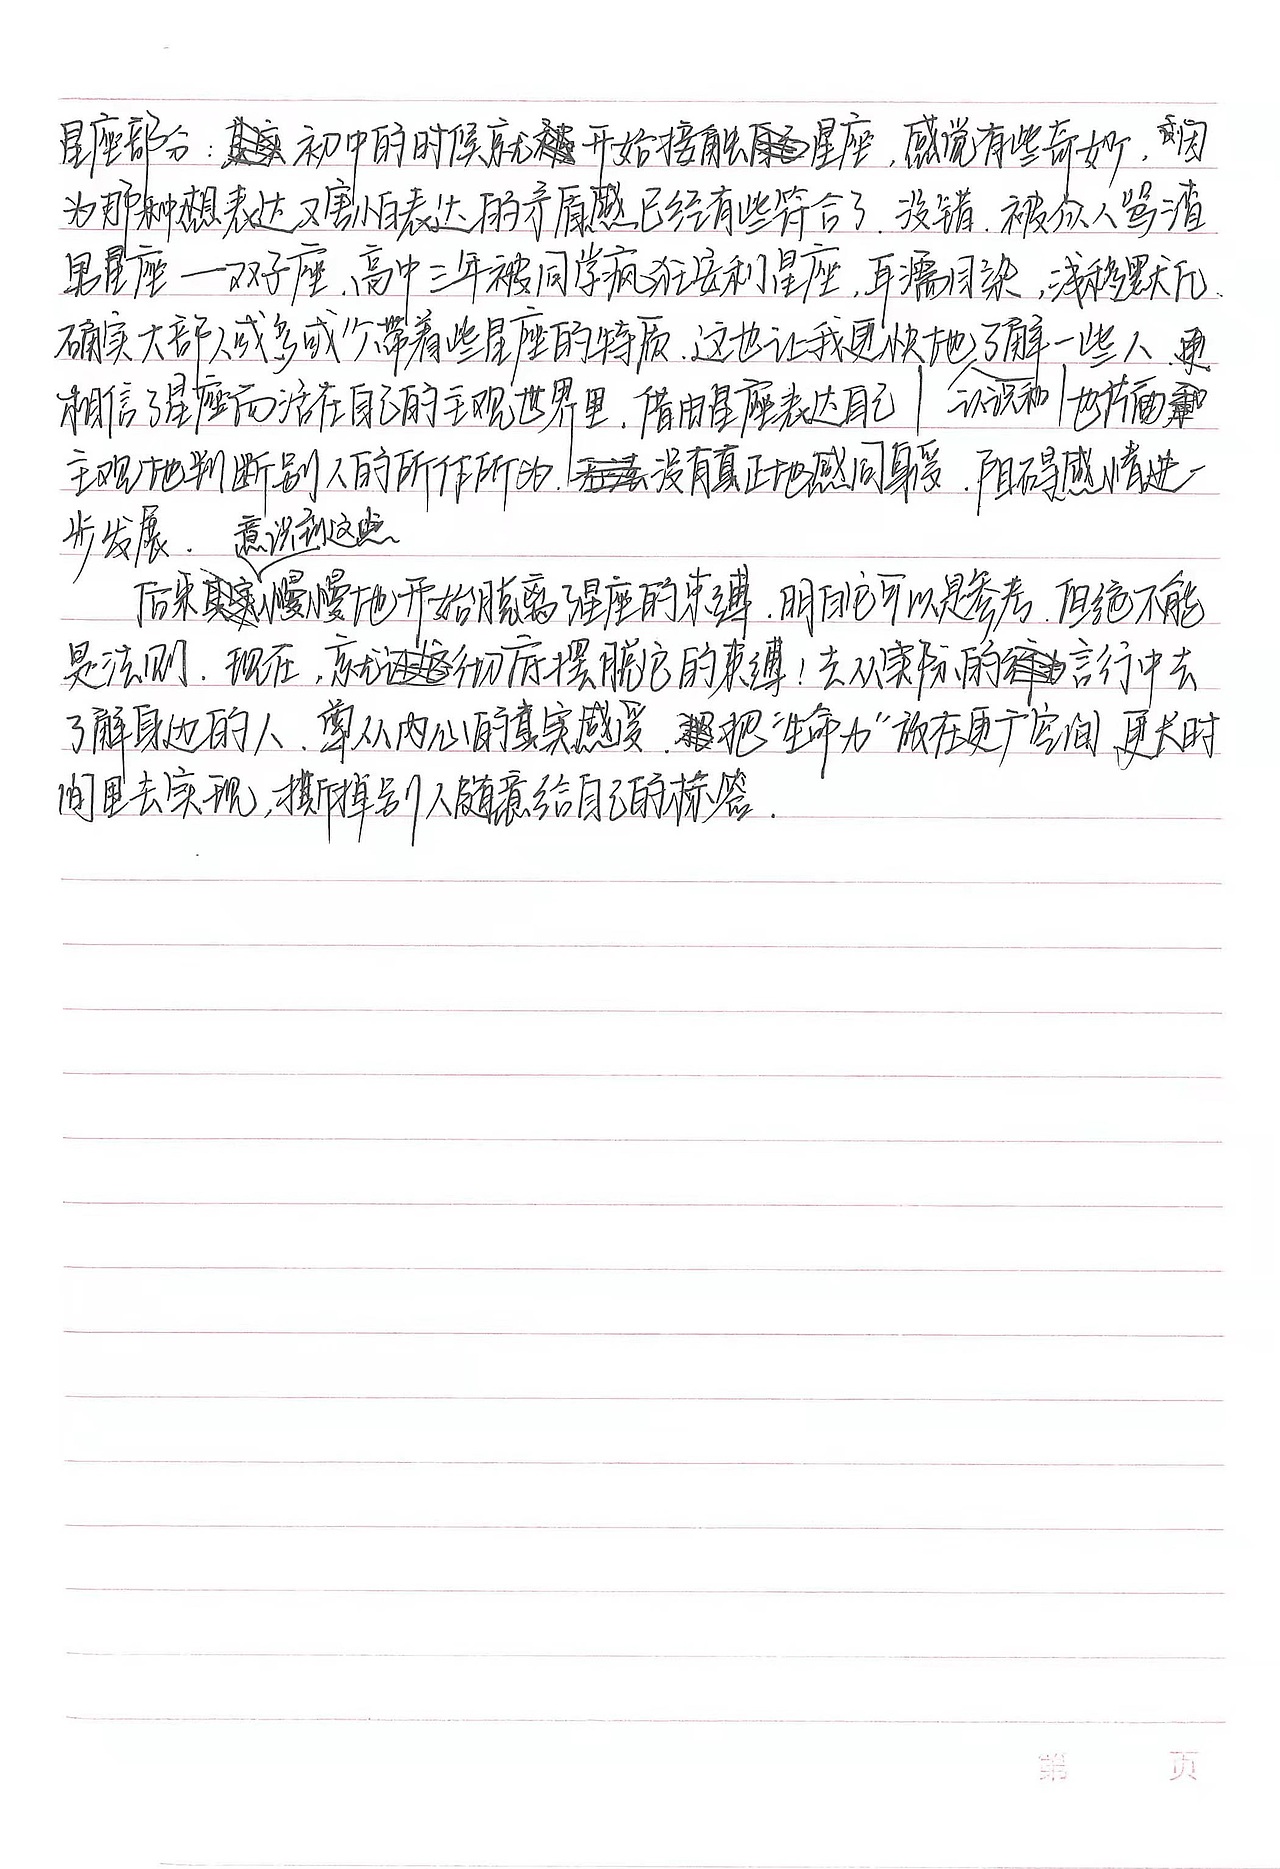 星座部分：初中的时候就开始接触星座，感觉有些奇妙，因
为那种想表达又害怕表达的矛盾感已经有些符合了．没错．被众人骂渣
男星座—双子座．高中三年被同学疯狂安利星座，耳濡目染，浅移默化．
确实大部人或多或少带着些星座的特质．这也让我更快地了解一些人．更
认识和
相信了星座而活在自己的主观世界里．借由星座表达自己 也片面
主观地判断别人的所作所为．没有真正地感同身受．阻碍感情进一
步发展．
意识到这些
后来慢慢地开始脱离了星座的束缚．明白它可以是参考．但绝不能
是法则．现在，就彻底摆脱它的束缚！去从实际的言行中去
了解身边的人．尊从内心的真实感受．把“生命力”放在更广空间 更长时
间里去实现，撕掉别人随意给自己的标签．
第 页